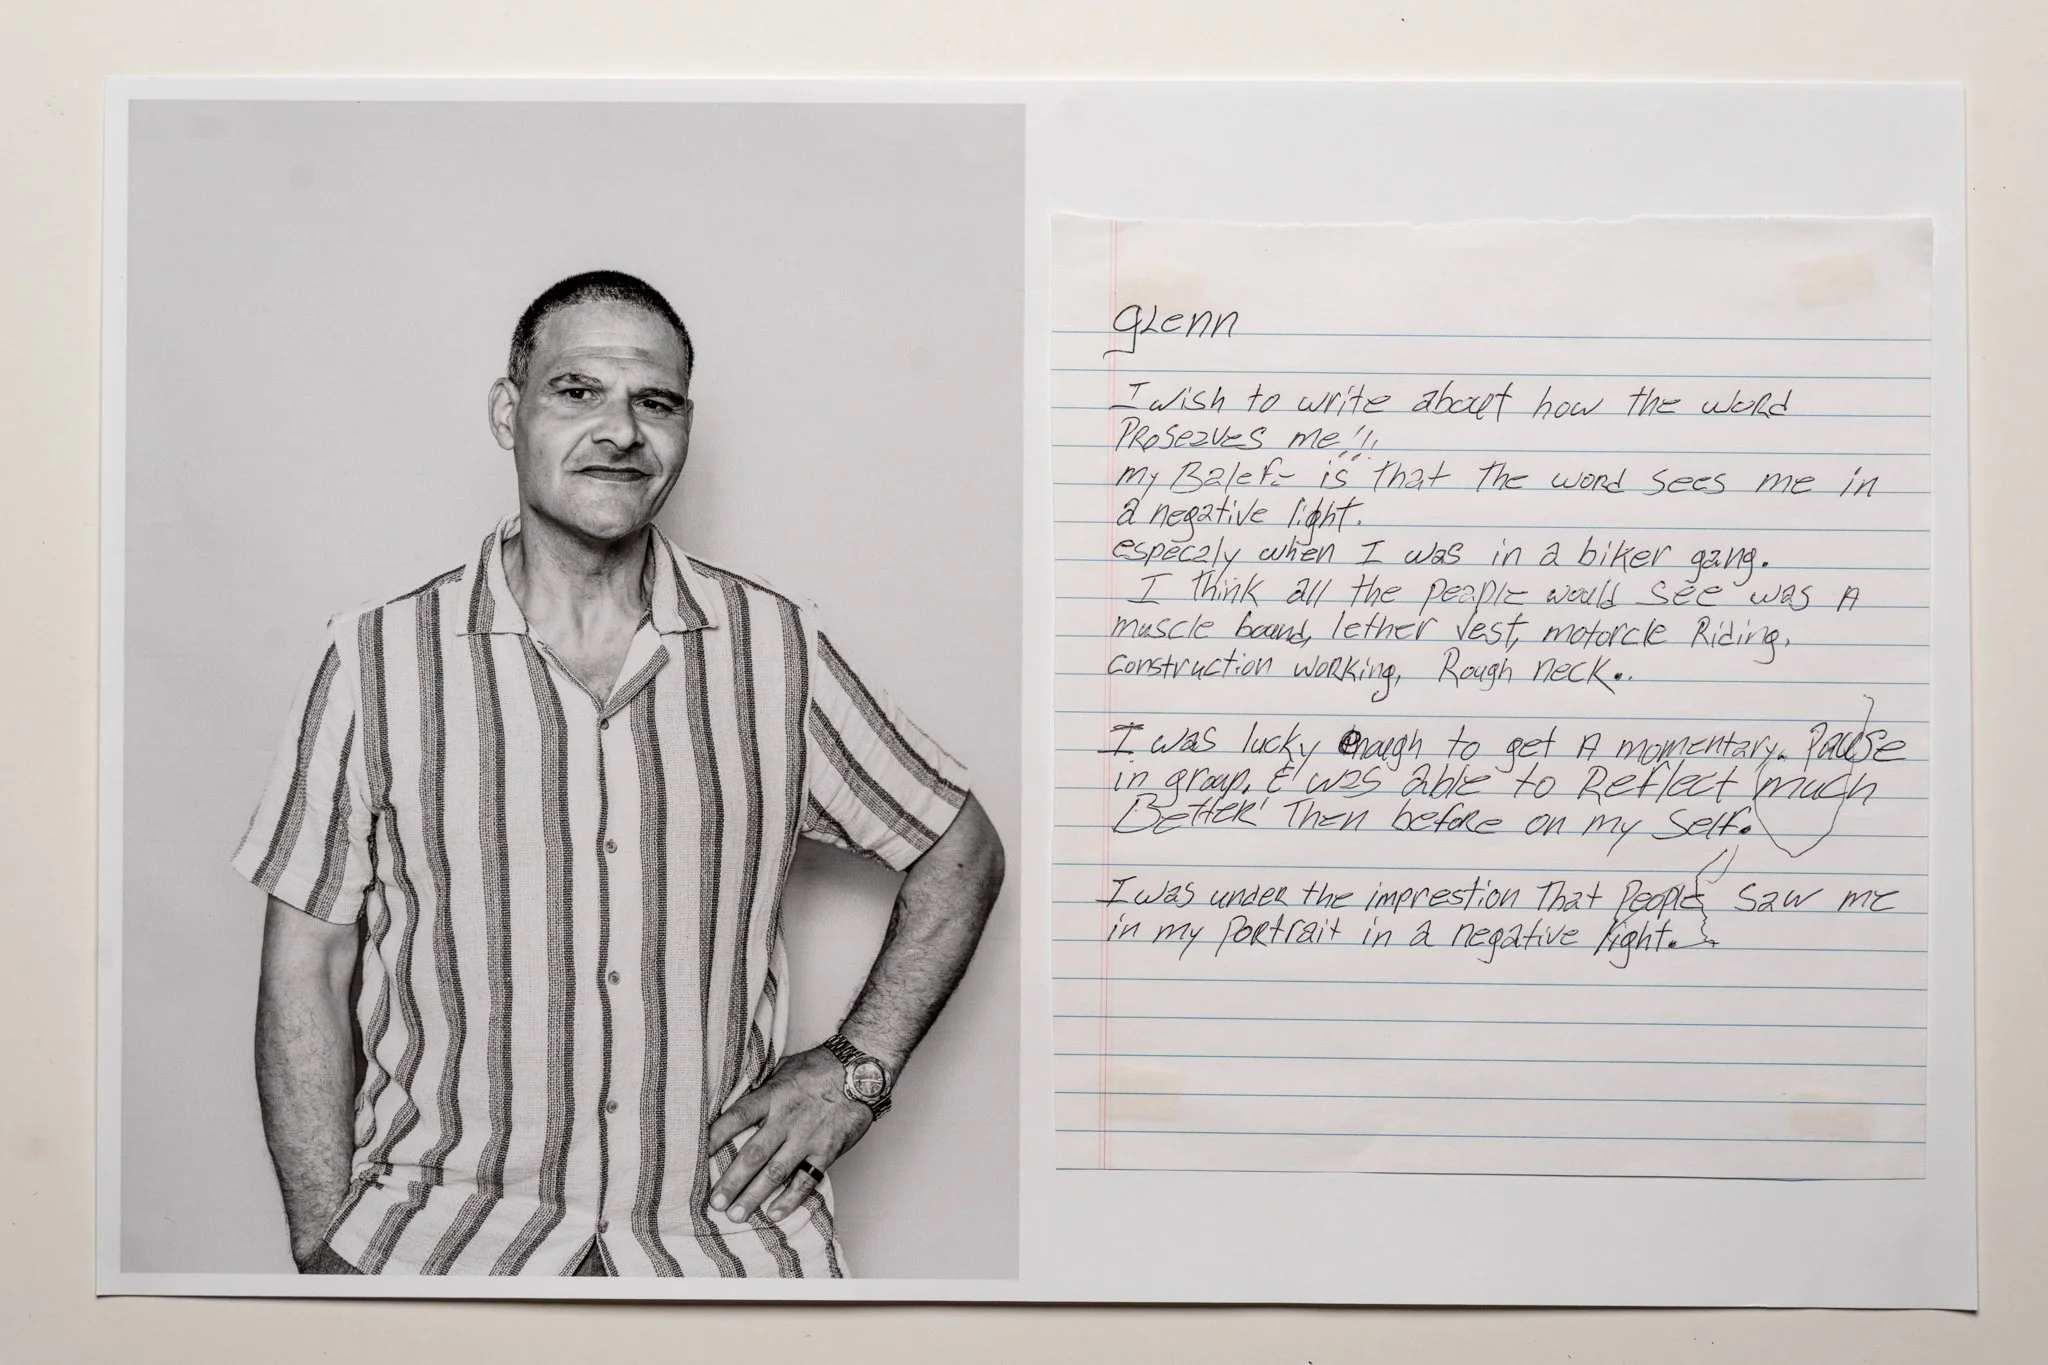 GLenn
I wish to write about how the world
Proseaves me!!!
my Balef- is that the world sees me in
a negative light.
especaly when I was in a biker gang.
I think all the people would see was A
muscle bound, lether vest, motorcle Riding,
construction working, Rough neck..
I was lucky enough to get A momentary. Pause
in group. & was able to Reflect much
Better Then before on my self.
I was under the imprestion That People saw me
in my portrait in a negative light.